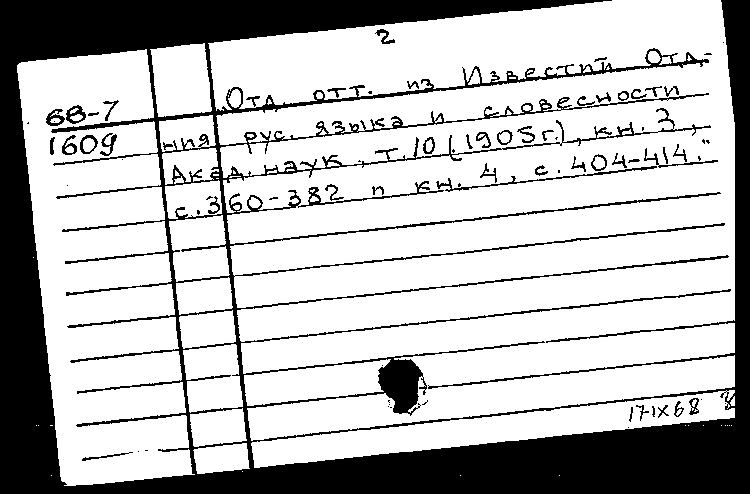 2
68-7
1609
Отд. отт. из Известий Отд-
ния рус. языка и словесности
Акад. наук, т. 10 (1905 г.), кн. 3,
с. 360-382 и кн. 4, с. 404-414."
17 IX 68 8